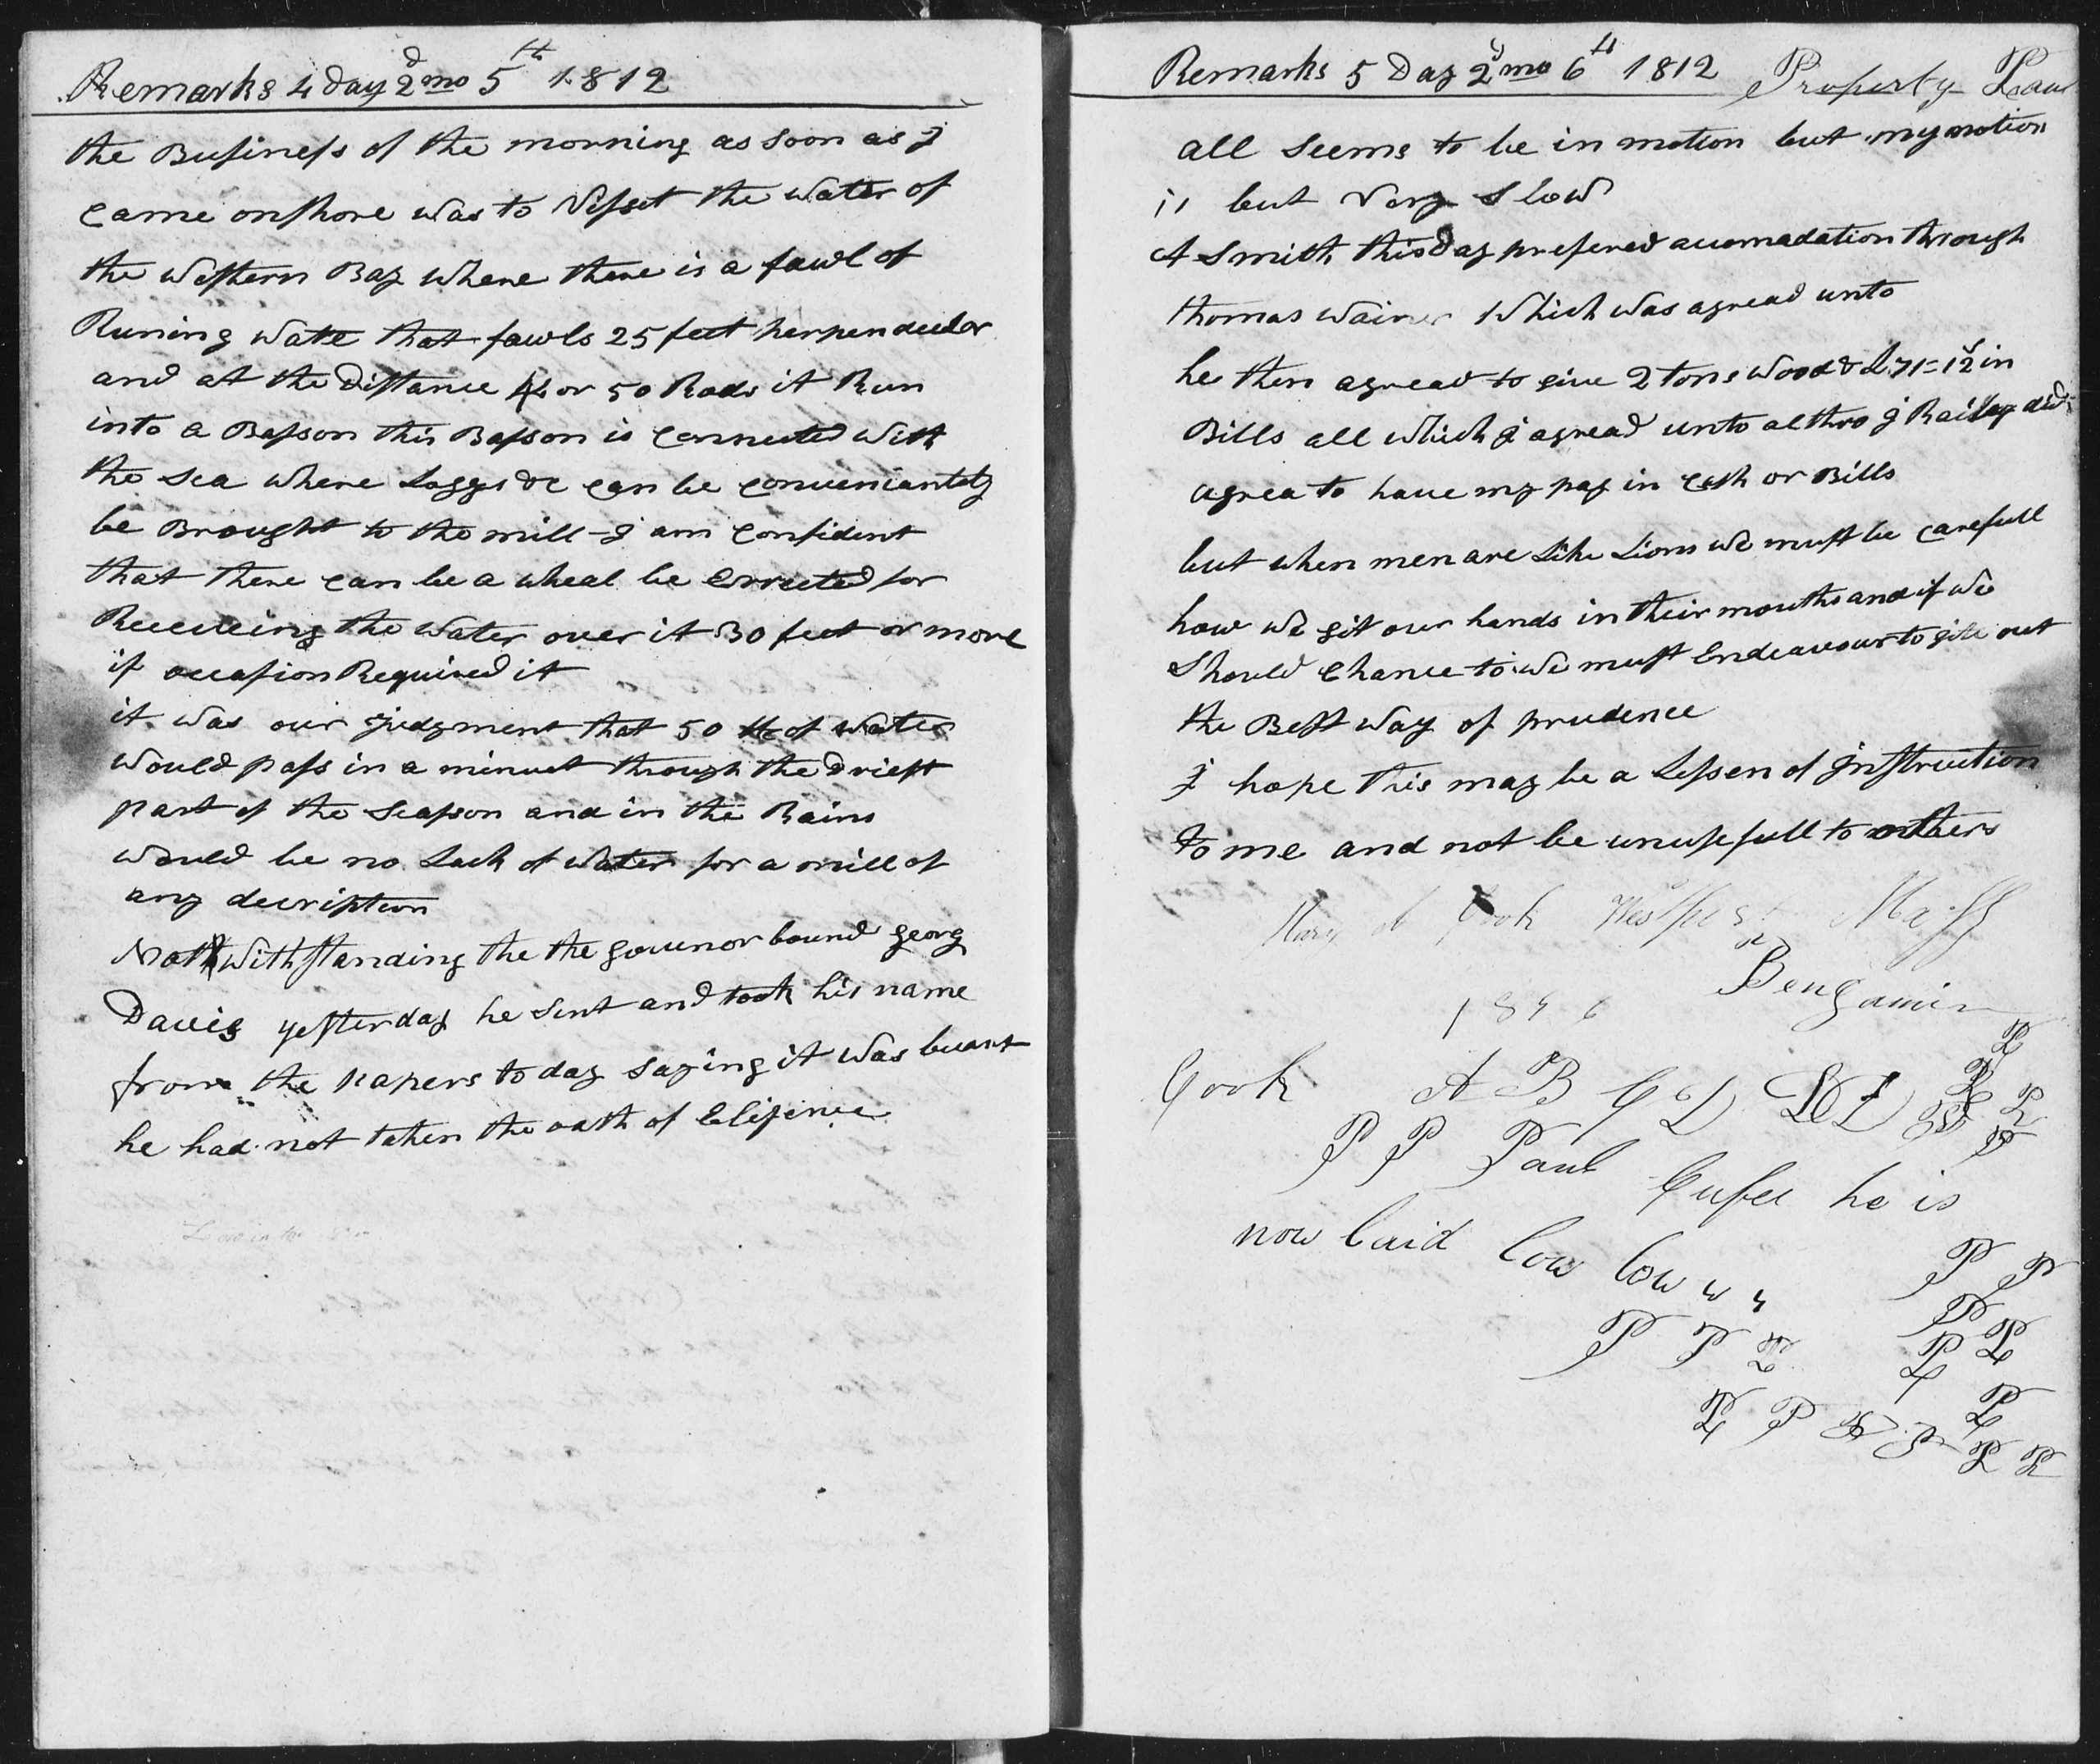 Remarks 4 day 2d mo 5th 1812
the Business of the morning as soon as I
came onshore was to Visset the water of
the Western Bay where there is a fawl of
Runing Wate that fawls 25 feet perpendeculer
and at the Distance or 50 Rods it Run
into a Basson this Basson is Connected With
the Sea where Loggs &c can be conveniantely
be Brought to the mill I am Confident
that there can be a wheal be Errected for
Receiveing the Water over it 30 feet or more
if occasion Required it
it was our judgment that 50 of Water
would pass in a minuet through the Driest
part of the Seasson and in the Rains
would be no Lack of Water for a mill of
any decription
Withstanding the the govenor bound georg
Davis yesterday he sent and took his name
from the papers to day saying it was
he had not taken the oath of
Remarks 5 Day 2d mo 6th 1812 Property
all seems to be in motion but my motion
is but Very Slow
A Smith this Day prefered accomadation through
thomas wainer Which was agread unto
he then agread to give 2 tons Wood & L71=12s in
Bills all which I agread unto altho I did
agrea to have my pay in Cash or Bills
but when men are Like Lions we must be carefull
how we git our hands in their mouths and if we
Should Chance to We must Endeavour to gite out
the Best way of prudence
I hope this may be a Lessen of Instruction
to me and not be unusefull to others
Cook Westport Mass
Bengamin
Cook A B C D
P P Paul Cufee he is
now laid low low w
P P
P P
P P
P
P